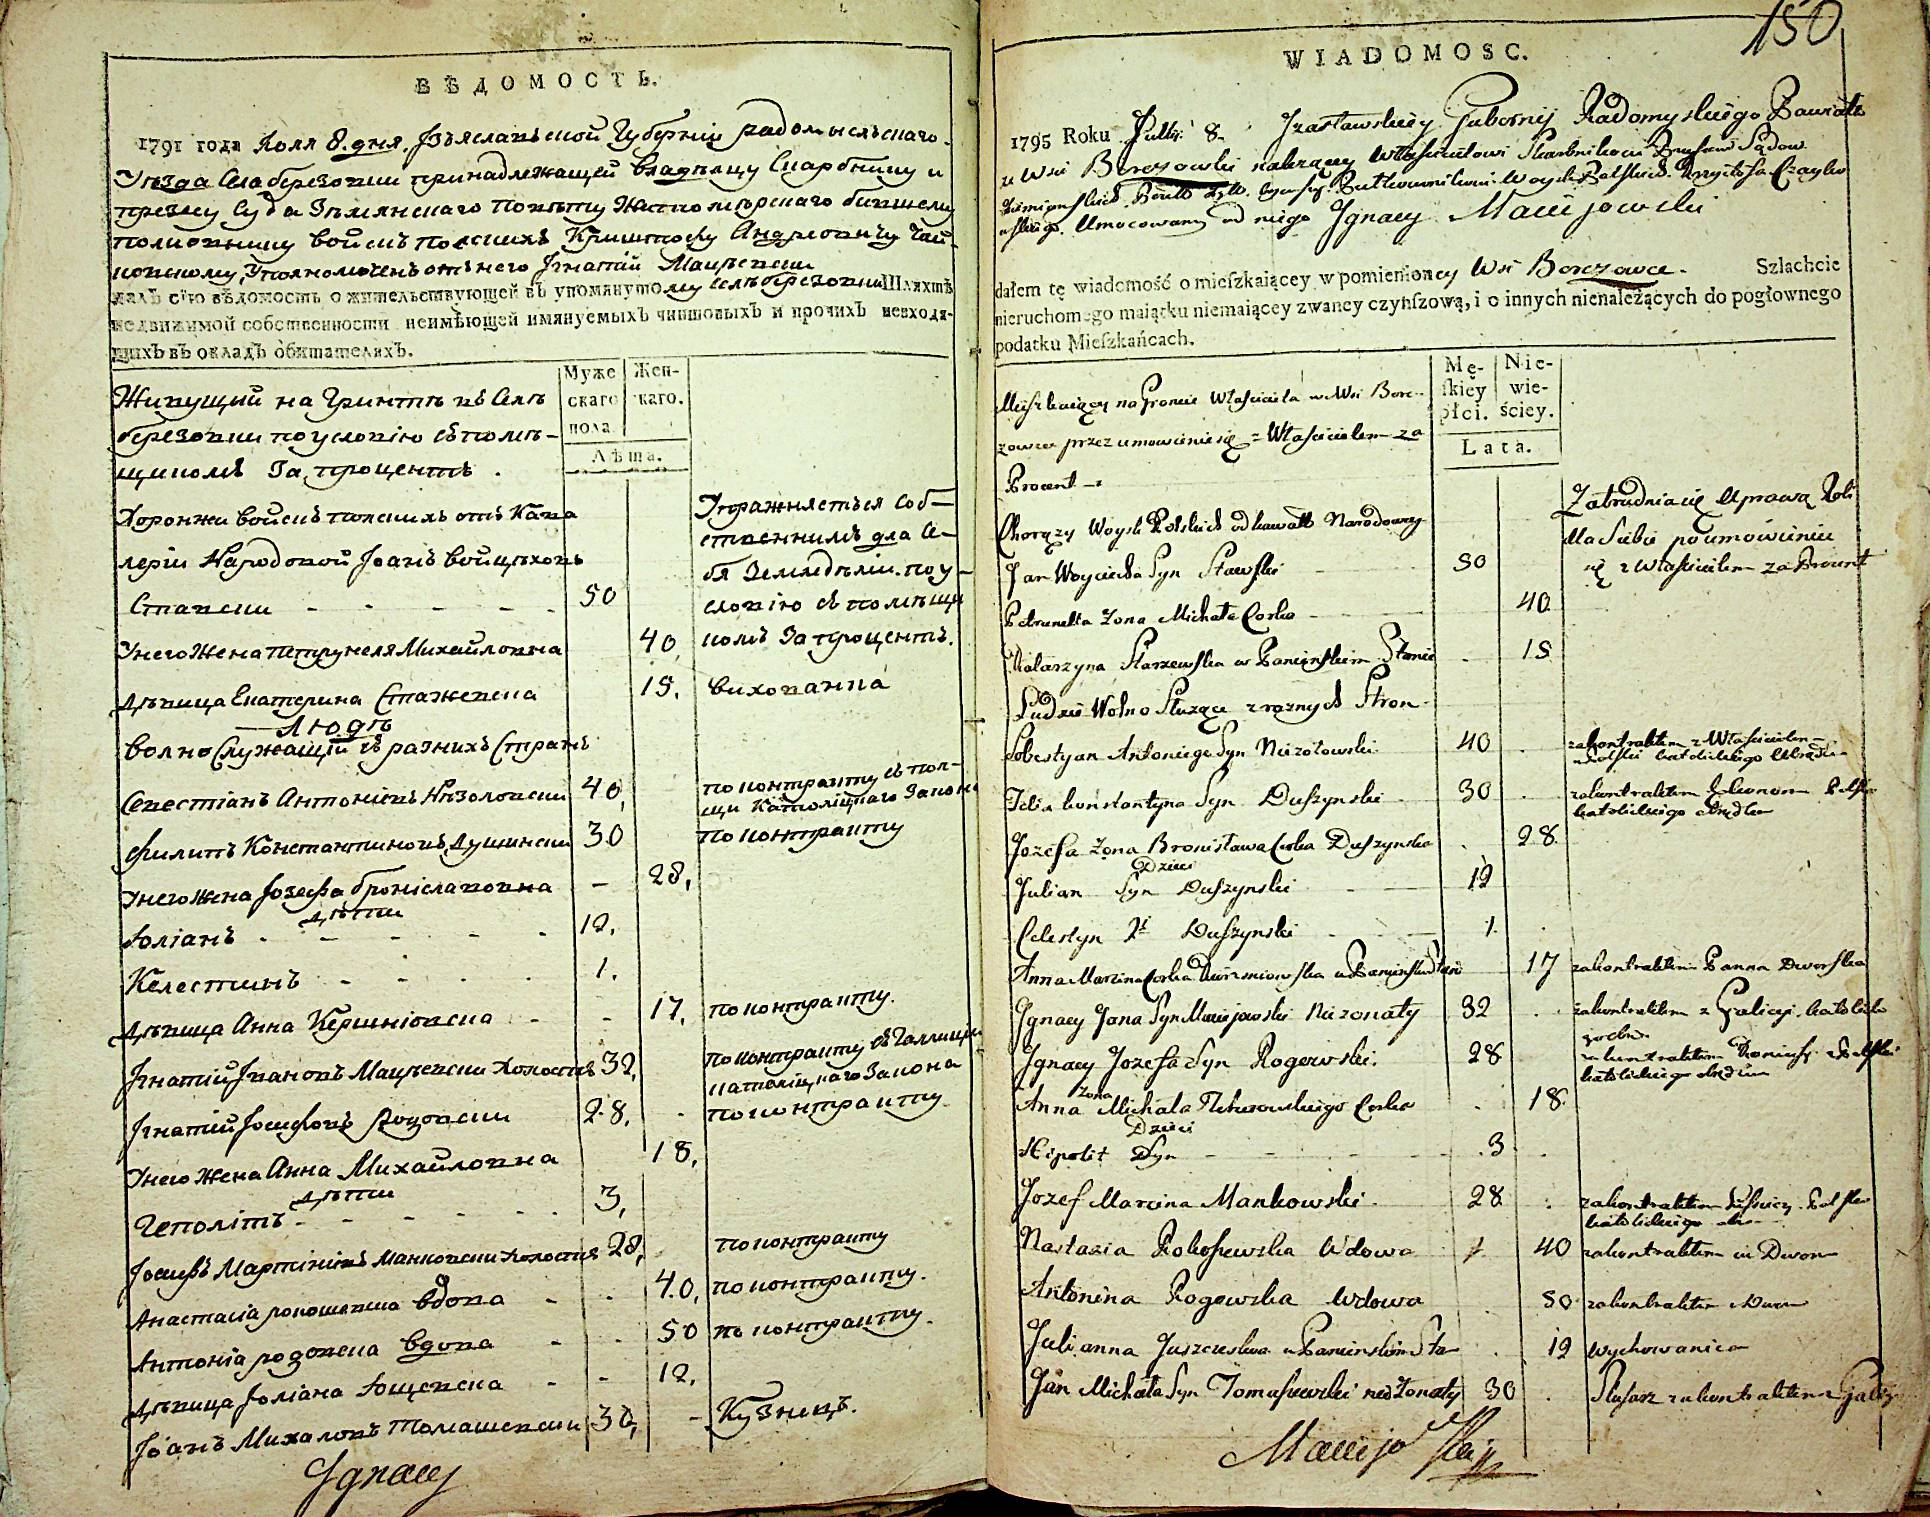 ВѢДОМОСТЬ.
1791 года Июля 8. дня, Изъяславской Губерніи Радомысльскаго
Уѣзда Села Березовки принадлежащей владѣльцу Скарбнику и
презесу Суда Земянскаго повѣту Житомѣрскаго бывшему
полковнику войскъ польскихъ Криштофу Андреовичу Чай-
ковскому, Уполномоченъ отъ него Игнатій Мацѣевски
далъ сію вѣдомость о жительствующей въ упомянутому селѣ березовки Шляхтѣ
недвижимой собственности неимѣющей имянуемыхъ чиншовыхъ и прочихъ невходя-
щихъ въ окладъ обитателяхъ.
Муже Жен-
скаго скаго.
пола
Лѣта.
Живущий на Грунтѣ въ Селѣ
березовки по условію съ помѣ-
щикомъ За процентъ.
Хоронжи войскъ польскихъ отъ Кава
леріи Народовой Іоанъ войцѣховъ
Ставски - - - - - 50
Упражняеться соб-
ственнимъ для се-
бя Земледѣліи. по у-
словію съ помѣщи
комъ За процентъ.
У него Жена Петрунеля Михайловна 40,
дѣвица Екатерина Стажевска 15, вихованка
Людѣ
волно Служащій съ разнихъ Странъ
Севестіанъ Антоніевъ Низоловски 40, по контракту съ пол-
щи Католіцкаго Закона
Филипъ Константиновъ Душински 30 по контракту
у него жена Іозефа броніславовна - 28,
дѣти
Юліанъ - - - - - 12,
Келестинъ - - - - 1.
дѣвица Анна Кершніовска - - 17, по контракту.
Игнатій Ивановъ Мацѣевски Холостъ 32, по контракту съ Галлиціи
католіцкаго Закона
Игнатій Іосифовъ Роговски 28, по контракту
у него Жена Анна Михайловна 18,
дѣти
Геполітъ - - - - - 3,
Іосифъ Мартініевъ Манковски холостъ 28, по контракту
Анастасія рокошевска вдова - - 40, по контракту.
Антонія роговска вдова - - 50 по контракту.
дѣвица Юліана Ющевска - - 12,
Іоанъ Михаловъ Томашевски 30, - Кузнецъ.
Ignacy
150
WIADOMOSC.
1795 Roku Julij 8. Izasławskiey Gubernij Radomyskiego Powiatu
ze Wsi Berezowki należący Właścicielowi Skarbnikowi Prezesowi Sądow
Ziemianskich Powiatu Żyto: bywszy Pułkownikowi Woysk Polskich Krzysztofa Czayko
wskiego. Umocowany od niego Ignacy Maciejowski
dałem tę wiadomość o mieszkaiącey w pomienioney Wsi Berezowce. Szlachcie
nieruchomego maiątku niemaiącey zwaney czynszową, i o innych nienależących do pogłownego
podatku Mieszkańcach.
Mę- Nie-
skiey wie-
płci. ściey.
Lata.
Mieszkaiący na Gruncie Właściciela w Wsi Bere-
zowce przez umowienie się z Właścicielem za
Procent -:
Chorąży Woysk Polskich od kawall Narodowey
Jan Woyciecha Syn Stawski - - 50
Zatrudnia się Uprawą Roli
dla Siebie po umówieniu
się z Właścicielem za Procent
Petrunella Zona Michała Corka - 40
Katarzyna Starzewska w Panienskim Stanie - 15
Ludzie Wolno Służące z roznych Stron
Sobestyan Antoniego Syn Nizołowski 40 . zakontraktem z Właścicielem
z Polski katolickiego Obrządku
Felix konstantyna Syn Duszynski 30 . zakontraktem Polski
katolickiego obrządku
Jozefa Zona Bronisława Corka Duszynska . 28
Dzieci
Julian Syn Duszynski - - 12
Celestyn Duszynski - - 1.
Anna Marcina Corka w Panienskim Stanie 17 zakontraktem Panna Dworska
Ignacy Jana Syn Maciejowski Niezonaty 32 . zakontraktem z Galicyi. katolicki
Ignacy Jozefa Syn Rogowski. 28 zakontraktem z Polski
katolickiego obrządku
Zona
Anna Michała Corka . 18
Dzieci
Hipolit Syn - - - - - 3 .
Jozef Marcina Mankowski 28 . zakontraktem Polski
katolickiego
Nastazia Rokoszewska Wdowa 40 zakontraktem u Dworu
Antonina Rogowska Wdowa . 50 zakontraktem u Dworu
Julianna Juszczewska w Panienskim Sta . 12 Wychowanica
Jan Michała Syn Tomaszewski nieżonaty 30 . Slusarz zakontraktem z Galicyi
Maciejowski